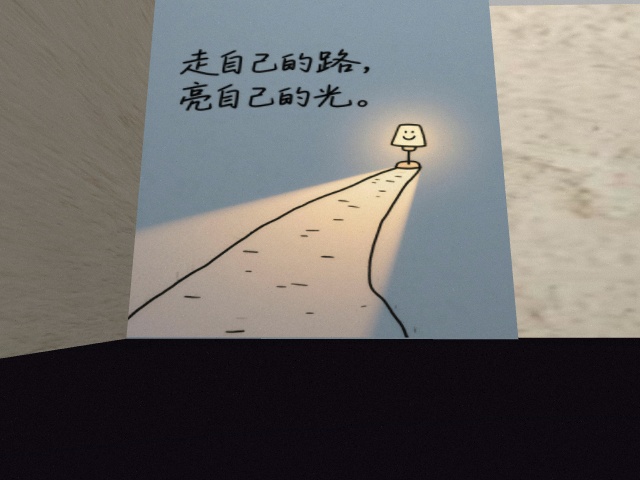 走自己的路，
亮自己的光。